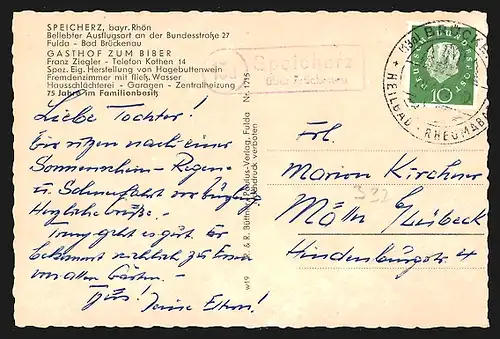 SPEICHERZ, bayr. Rhön
Beliebter Ausflugsort an der Bundesstraße 27
Fulda - Bad Brückenau
GASTHOF ZUM BIBER
Franz Ziegler - Telefon Kothen 14
Spez. Eig. Herstellung von Hagebuttenwein
Fremdenzimmer mit fließ. Wasser
Hausschlächterei - Garagen - Zentralheizung
75 Jahre im Familienbesitz
Speicherz
über Brückenau
DEUTSCHE BUNDESPOST
10
HEILBAD RHEUMA
Liebe Tochter!
Wir sitzen nach einer
Sonnenschein- Regen-
u. Schneefahrt
Herzliche Grüße.
geht es gut. Er
bekommt
von allen
Tjüs! Deine Eltern!
w19 P. & R. Büttner, Paulus-Verlag, Fulda Nr. 1215
Nachdruck verboten
Frl.
Marion Kirchner
332
Mölln b/Lübeck
Hindenburgstr. 4